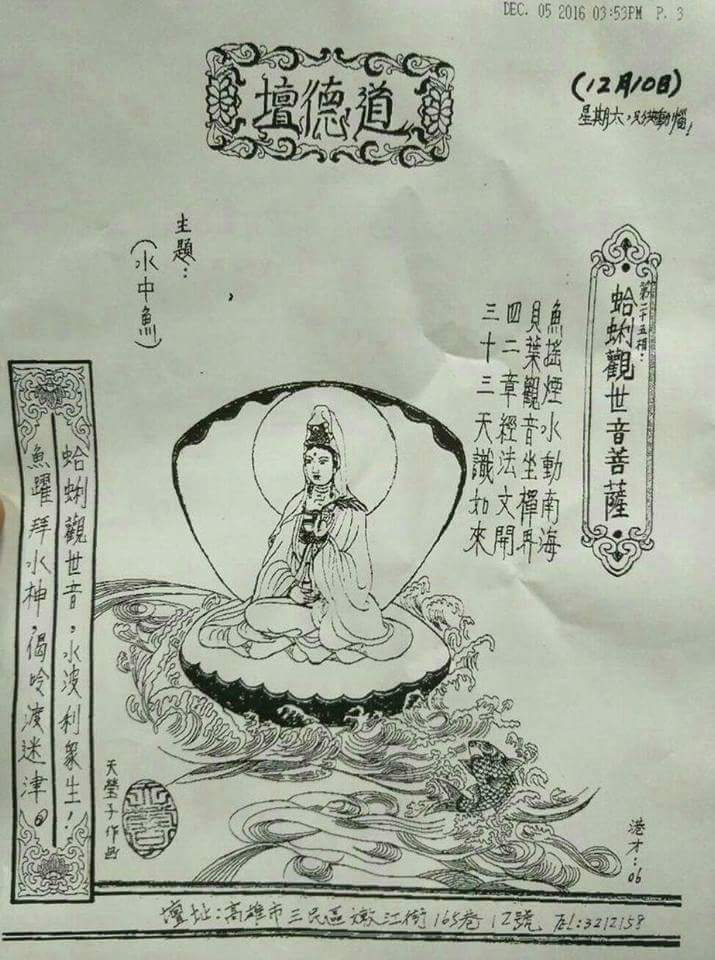 DEC. 05 2016 03:53PM P. 3
道德壇
(12月10日)
星期六
第二十五相：
蛤蜊觀世音菩薩
魚搖煙水動南海
貝葉觀音坐禪再
四二章經法文開
三十三天識如來
主題：
(水中魚)
蛤蜊觀世音，水波利眾生！
魚躍拜水神，偈唅渡迷津。
天瑩子作画
港才：06
壇址：高雄市三民區嫩江街165巷12號 TEL:3212158